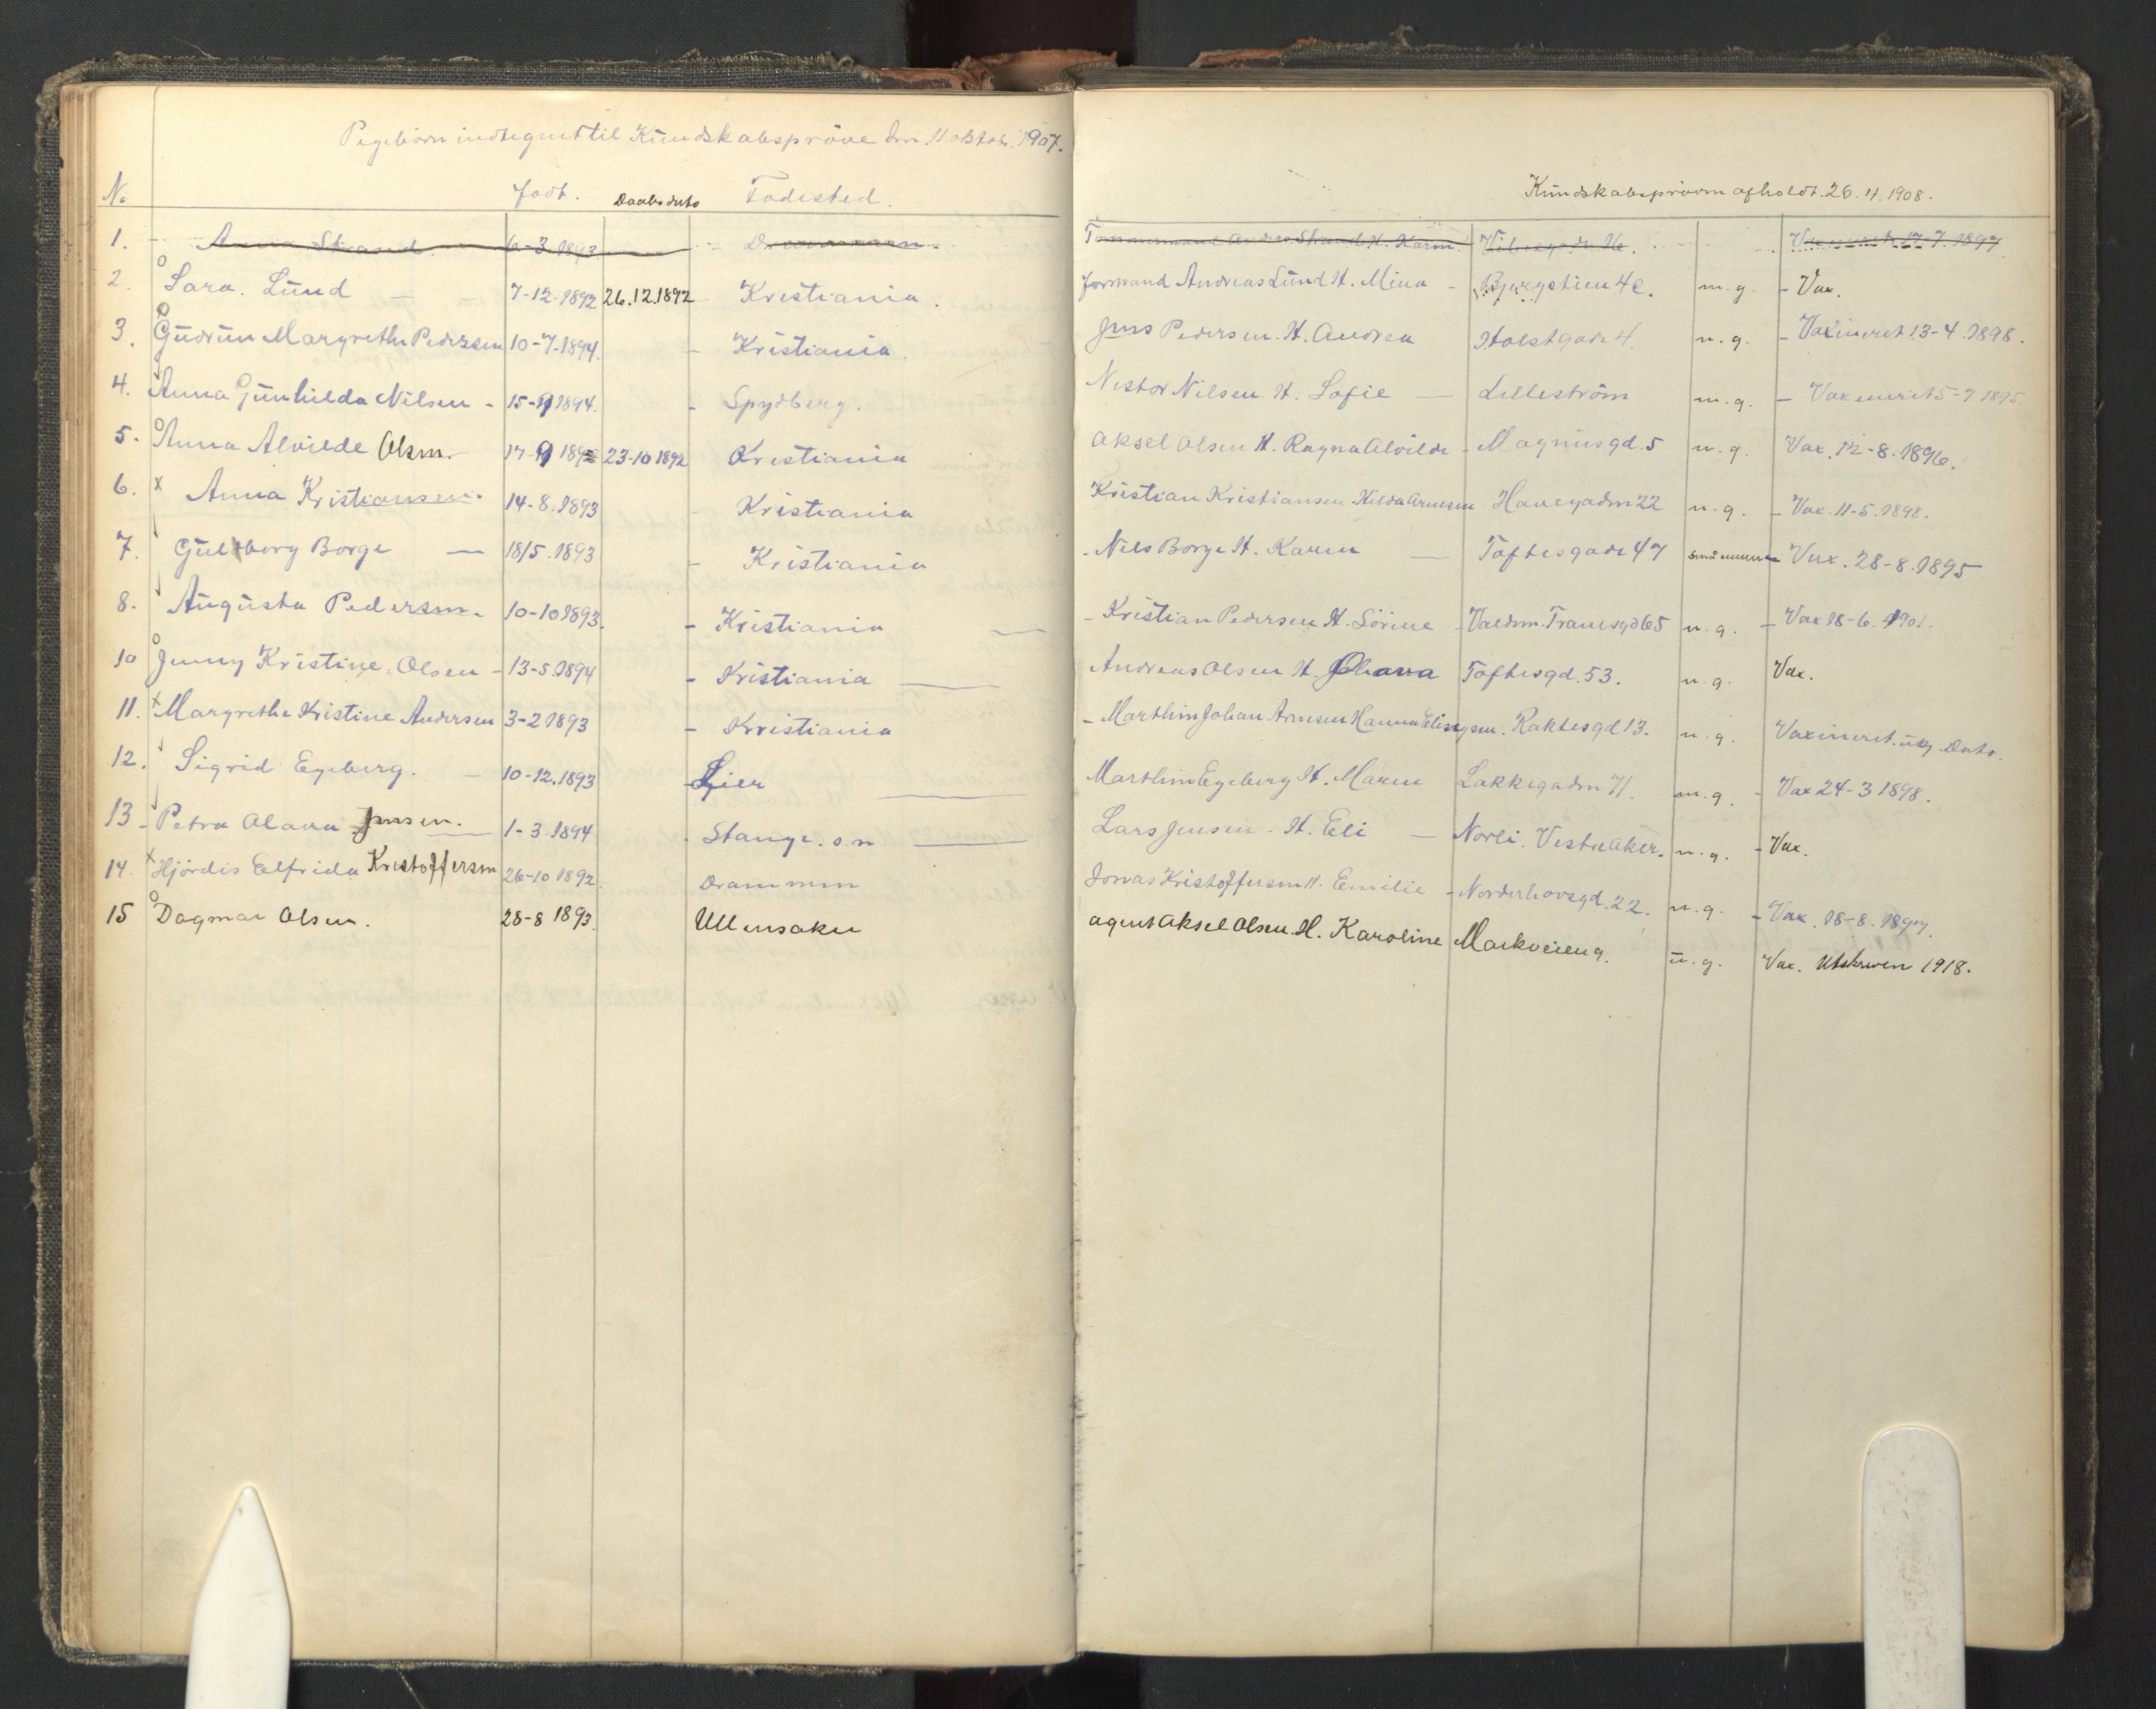 Pigebörn indtegnet til Kundskabspröve den 11 oktobr. 1907.
Kundskabsprövrn afholdt. 26.4.1908.
No. Födt. Daabsdato Födested.
1. Anna Strand 6-3.1893 Drammen. Tömmermand Anders Strand H. Karen. 17-7.1897
2. Sara. Lund 7-12-1892 26.12.1892 Kristiania. Formand Andreas Lund H. Mina - Bjergstien 4c. m.g. - Vax.
3. Gudrun Margrethe Pedersen 10-7-1894. - Kristiania. Jens Pedersen. H. Andrea Holstgade 4. n.g. - Vaxineret 13-4.1898.
4. Anna Gunhilda Nilsen - 15-9 1894. - Spydberg. Nestor Nilsen H. Sofie - Lilleström m.g. - Vaxineret 5-7 1895.
5. Anna Alvilde Olsen. 17-9 1892 23-10 1892 Kristiania Aksel Olsen H. Ragna Alvilde - Magnusgd. 5 n.g. Vax. 12-8.1896.
6. x Anna Kristiansen. 14-8.1893 - Kristiania Kristian Kristiansen Hilda Arnesen Havegaden 22 n.g. - Vax. 11-5.1898.
7. Gulborg Borge - 18/5.1893 - Kristiania - Nils Borge H. Karen - Toftesgade 47 - Vax. 28-8.1895
8. Augusta Pedersen. 10-10 1893. - Kristiania - - Kristian Pedersen H. Sörine - Valdem. Tranesgd 65 n.g. - Vax 18-6.1901.
10 Jenny Kristine Olsen - 13-5.1894 - Kristiania - Andreas Olsen H. Johanna Toftesgd. 53. n.g. Vax.
11. x Margrethe Kristine Andersen 3-2 1893 - Kristiania - Marthin Johan Arnesen Hanna Ellingsen. Raktesgd 13. n.g. Vaxineret. Dato.
12. Sigrid Egeberg. - 10-12.1893 - Lier - Marthin Egeberg H. Maren Lakkegaden 71. m.g. - Vax 24-3 1898.
13 - Petra Olava Jensen. 1-3.1894 Stange. s.n - Lars Jensen - H. Eli - Norli. Vestre Aker. n.g. - Vax.
14. x Hjördis Elfrida Kristoffersen 26-10 1892. Drammen Jonas Kristoffersen H. Emilie - Norderhovsgd. 22. n.g. - Vax. 18-8.1897.
15 Dagmar Olsen. 28-8 1893. Ullensaker agent Aksel Olsen. H. Karoline Markveien 9. n.g. Vax. Utskreven 1918.